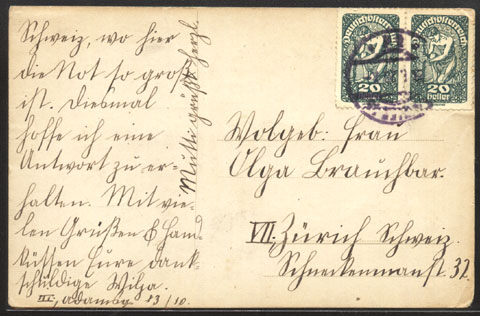 Schweiz, wo hier
die Not so gross
ist. Diesmal
hoffe ich eine
Antwort zu er-
halten. Mit vie-
len Grüßen & Hand-
küssen Eure dank-
schuldige
III., 13/10.
Mutti grüßt herzl.
Deutschösterreich
20
Heller
Deutschösterreich
20
Heller
Wolgeb: Frau
Olga Brauchbar.
VII. Zürich Schweiz.